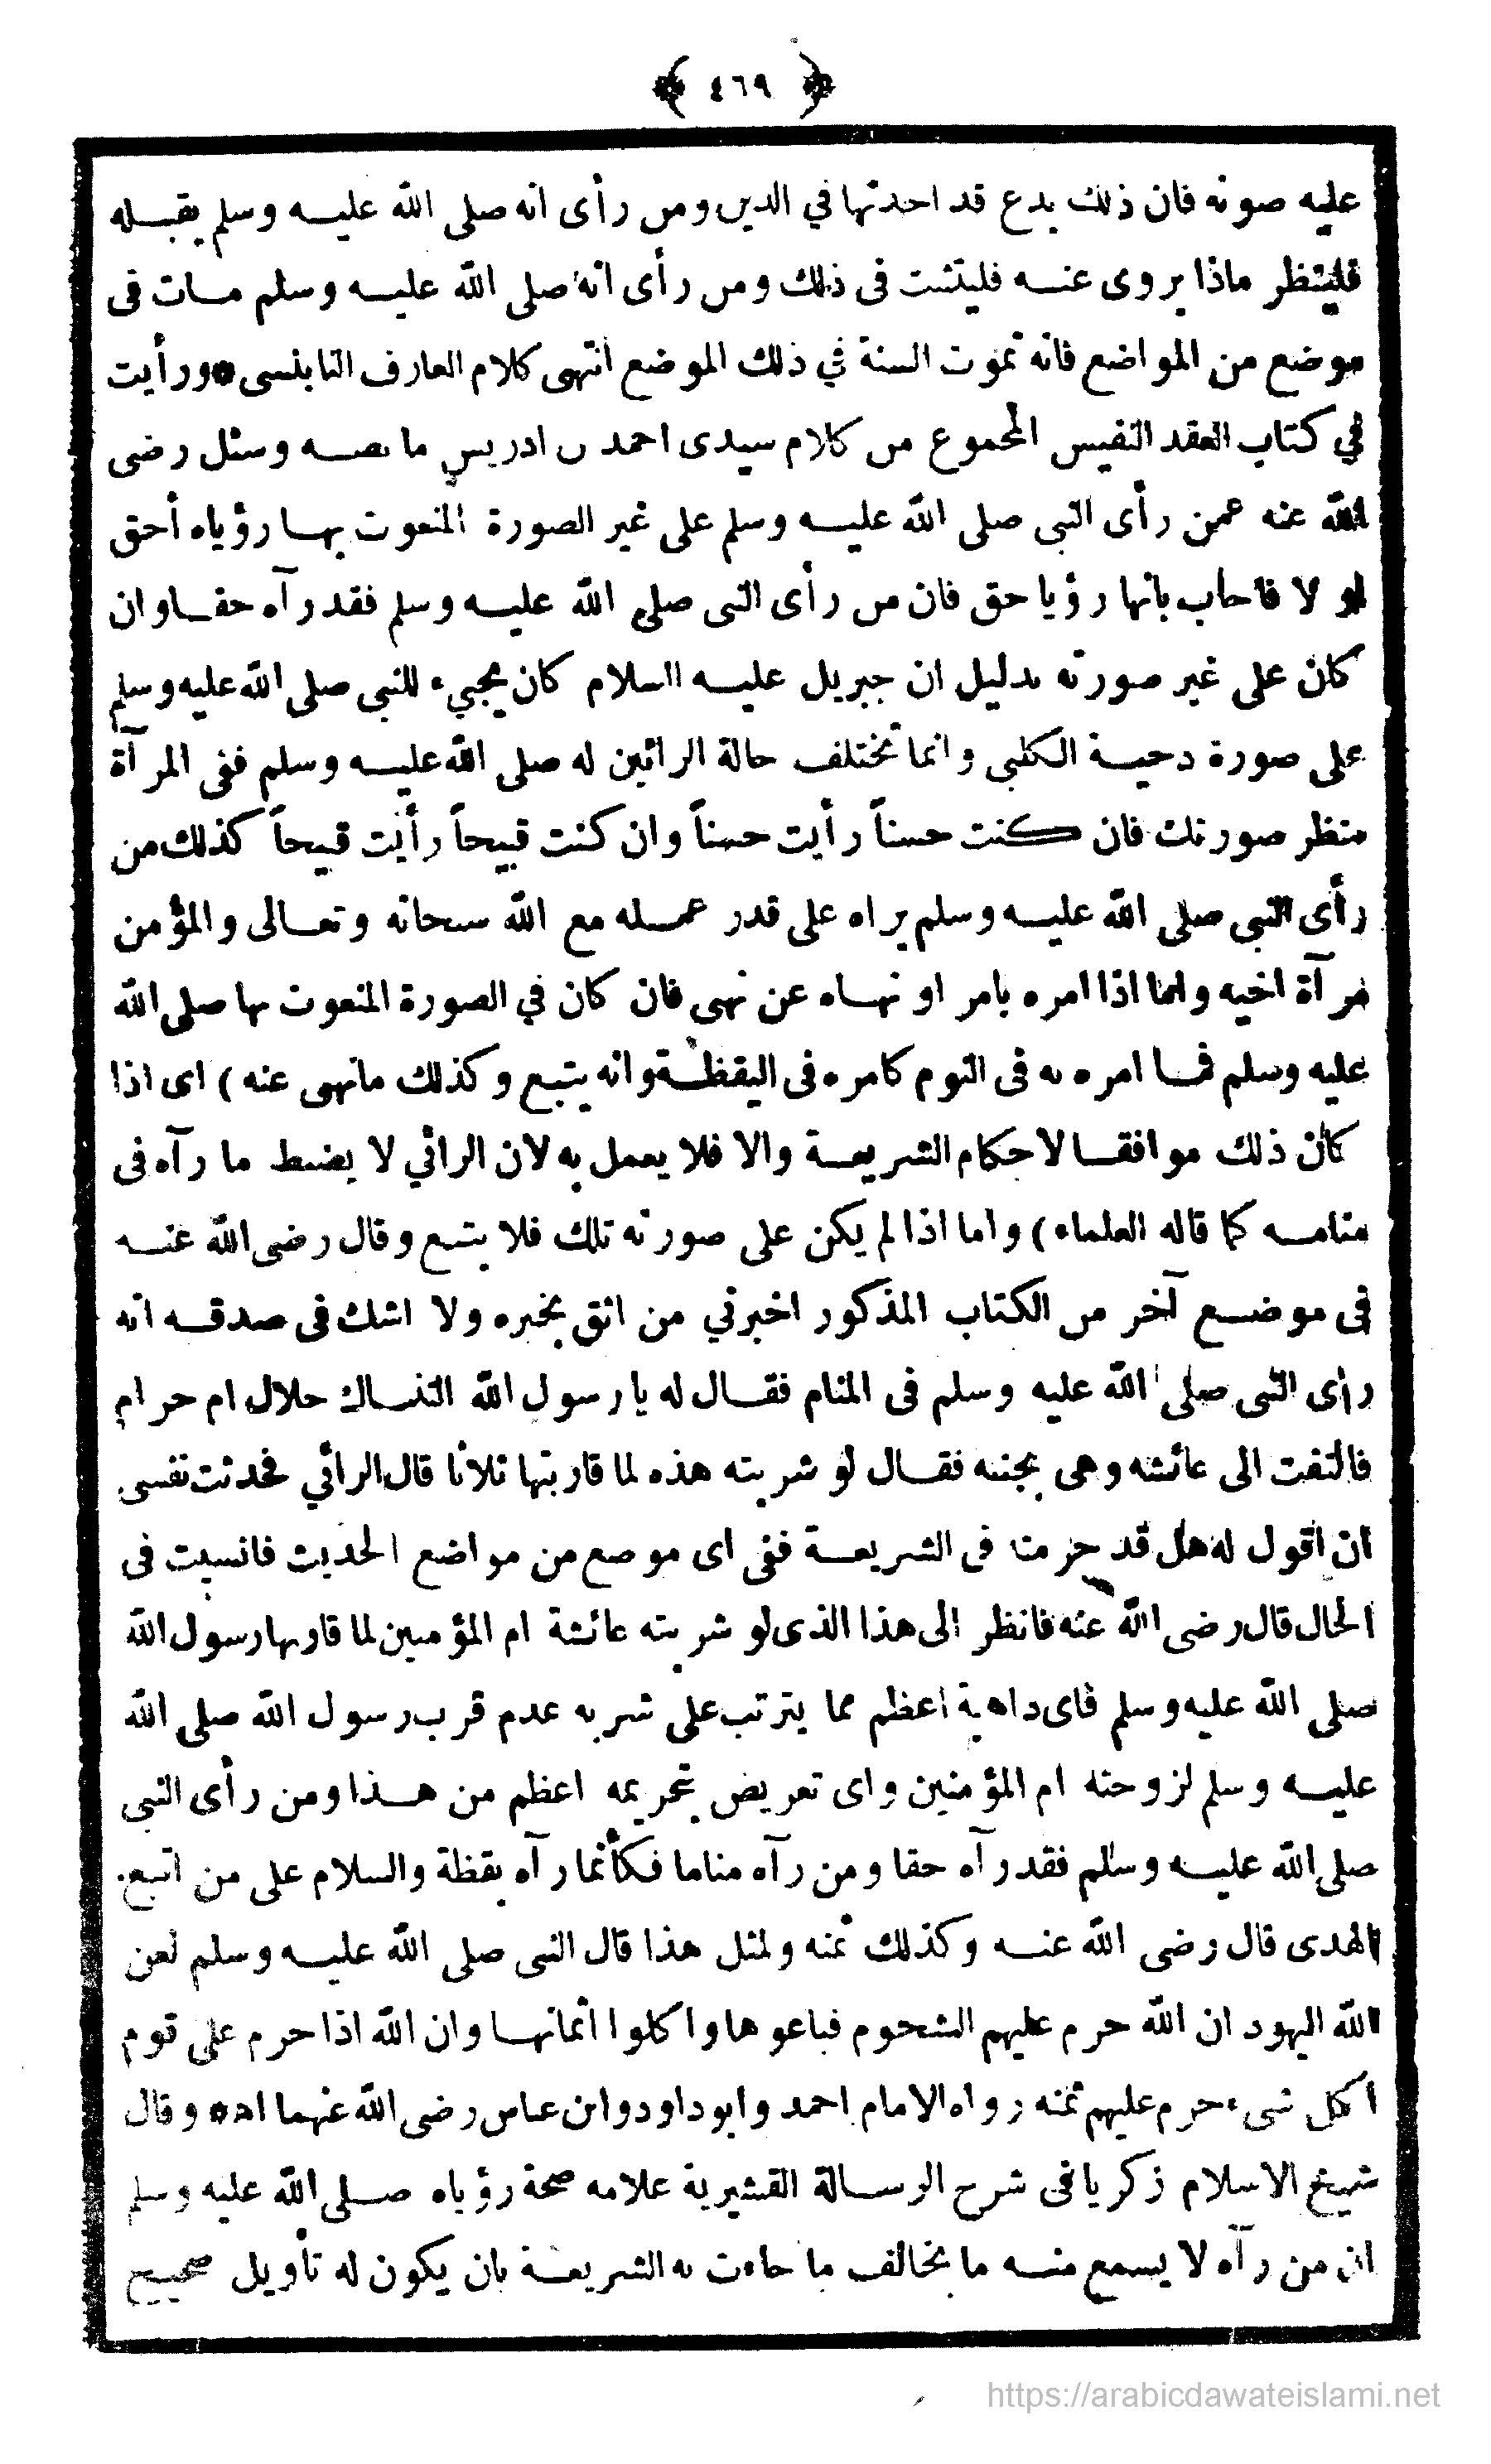 ﴿ ٤٦٩ ﴾
عليه صوته فان ذلك بدع قد احدثها في الدين ومن رأى انه صلى الله عليه وسلم يقبله
فلينظر ماذا يروى عنه فليتثبت فى ذلك ومن رأى انه صلى الله عليه وسلم مات فى
موضع من المواضع فانه تموت السنة في ذلك الموضع انتهى كلام العارف النابلسى * ورأيت
في كتاب العقد النفيس المجموع من كلام سيدى احمد بن ادريس ما نصه وسئل رضى
الله عنه عمن رأى النبى صلى الله عليه وسلم على غير الصورة المنعوت بها رؤياه أحق
او لا فاجاب بانها رؤيا حق فان من رأى النبى صلى الله عليه وسلم فقد رآه حقا وان
كان على غير صورته بدليل ان جبريل عليه السلام كان يجيء للنبى صلى الله عليه وسلم
على صورة دحية الكلبى وانما تختلف حالة الرائين له صلى الله عليه وسلم ففى المرآة
تنظر صورتك فان كنت حسناً رأيت حسناً وان كنت قبيحاً رأيت قبيحاً كذلك من
رأى النبى صلى الله عليه وسلم يراه على قدر عمله مع الله سبحانه وتعالى والمؤمن
مرآة اخيه واما اذا امره بامر او نهاه عن نهى فان كان في الصورة المنعوت بها صلى الله
عليه وسلم فما امره به فى النوم كامره فى اليقظة وانه يتبع وكذلك ما نهى عنه ) اى اذا
كان ذلك موافقا لاحكام الشريعة والا فلا يعمل به لان الرائي لا يضبط ما رآه فى
منامه كما قاله العلماء ) واما اذا لم يكن على صورته تلك فلا يتبع وقال رضى الله عنه
فى موضع آخر من الكتاب المذكور اخبرني من اثق بخبره ولا اشك فى صدقه انه
رأى النبى صلى الله عليه وسلم فى المنام فقال له يا رسول الله التنباك حلال ام حرام
فالتفت الى عائشه وهى بجنبه فقال لو شربته هذه لما قاربتها ثلاثا قال الرائي فحدثت نفسى
ان اقول له هل قد حرمت فى الشريعة ففى اى موضع من مواضع الحديث فانسيت فى
الحال قال رضى الله عنه فانظر الى هذا الذى لو شربته عائشة ام المؤمنين لما قاربها رسول الله
صلى الله عليه وسلم فاى داهية اعظم مما يترتب على شربه عدم قرب رسول الله صلى الله
عليه وسلم لزوجته ام المؤمنين واى تعريض بتحريمه اعظم من هذا ومن رأى النبى
صلى الله عليه وسلم فقد رآه حقا ومن رآه مناما فكأنما رآه يقظة والسلام على من اتبع
الهدى قال رضى الله عنه وكذلك ثمنه ولمثل هذا قال النبى صلى الله عليه وسلم لعن
الله اليهود ان الله حرم عليهم الشحوم فباعوها واكلوا اثمانها وان الله اذا حرم على قوم
اكل شىء حرم عليهم ثمنه رواه الامام احمد وابو داود وابن عباس رضى الله عنهما اه * وقال
شيخ الاسلام زكريا فى شرح الرسالة القشيرية علامه صحة رؤياه صلى الله عليه وسلم
ان من رآه لا يسمع منه ما يخالف ما جاءت به الشريعة بان يكون له تأويل صحيح
https://arabicdawateislami.net